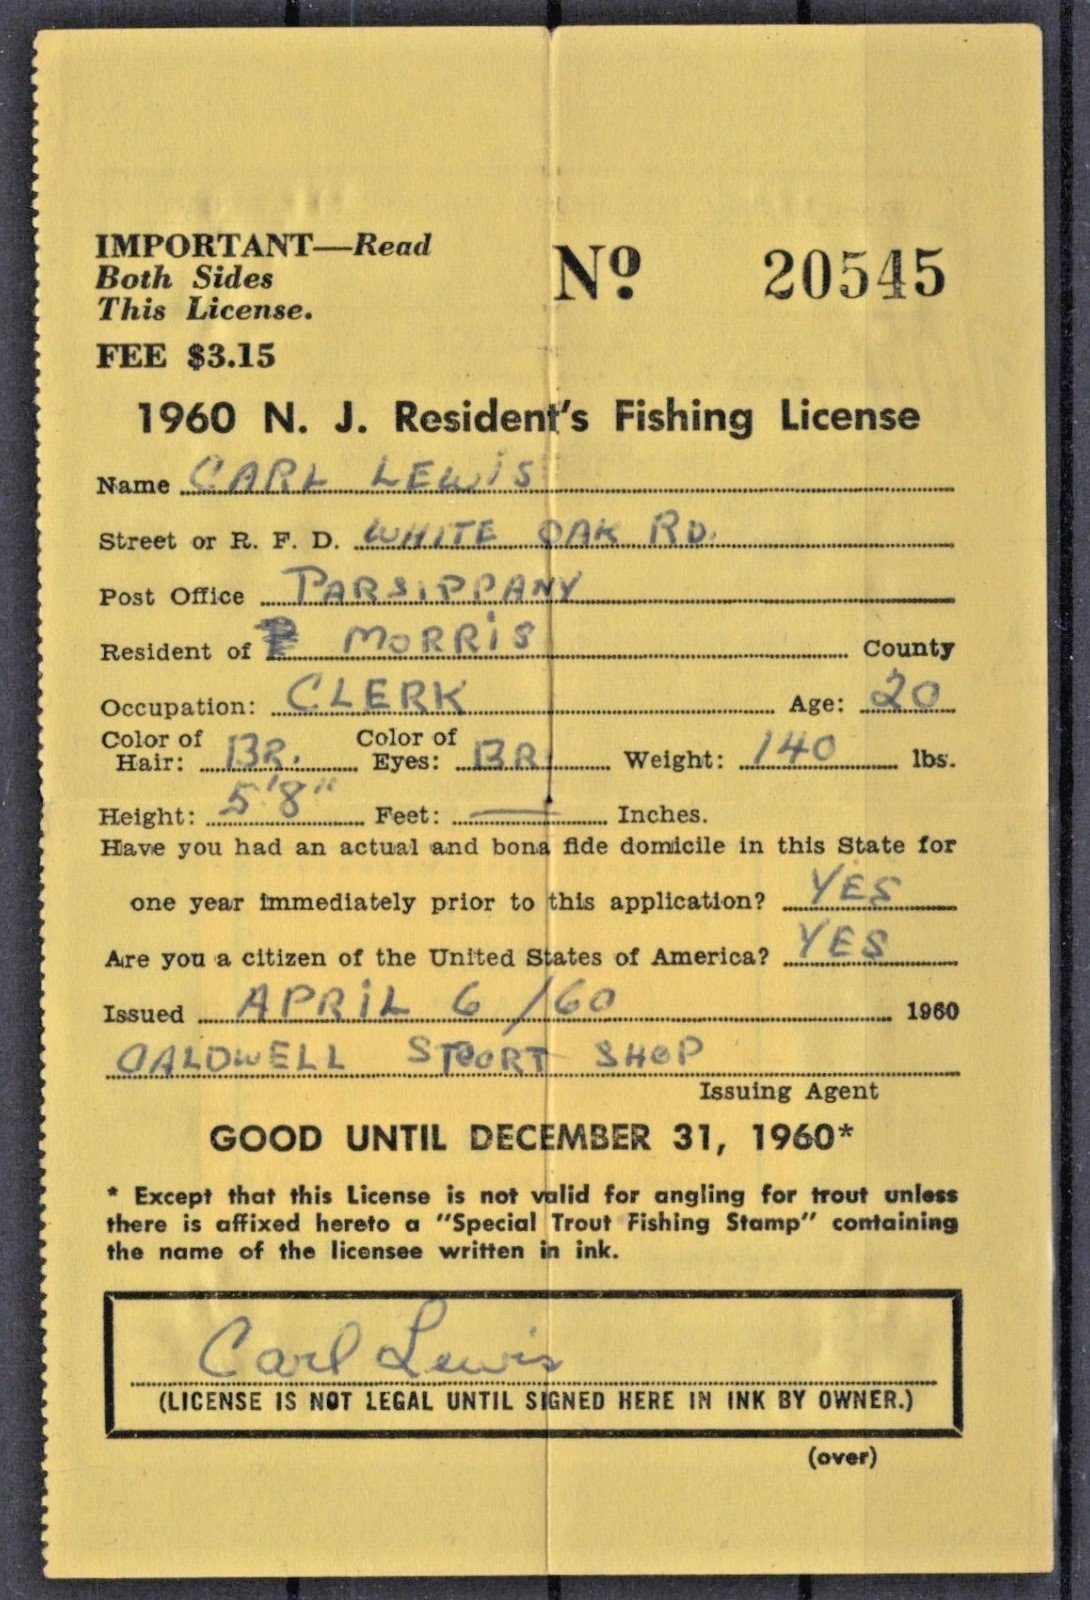 IMPORTANT—Read
Both Sides
This License.
No 20545
FEE $3.15
1960 N. J. Resident's Fishing License
Name CARL LEWIS
Street or R. F. D. WHITE OAK RD.
Post Office PARSIPPANY
Resident of MORRIS County
Occupation: CLERK Age: 20
Color of Hair: BR. Color of Eyes: BR. Weight: 140 lbs.
Height: 5'8" Feet: — Inches.
Have you had an actual and bona fide domicile in this State for
one year immediately prior to this application? YES
Are you a citizen of the United States of America? YES
Issued APRIL 6/60 1960
CALDWELL SPORT SHOP
Issuing Agent
GOOD UNTIL DECEMBER 31, 1960*
* Except that this License is not valid for angling for trout unless
there is affixed hereto a "Special Trout Fishing Stamp" containing
the name of the licensee written in ink.
Carl Lewis
(LICENSE IS NOT LEGAL UNTIL SIGNED HERE IN INK BY OWNER.)
(over)